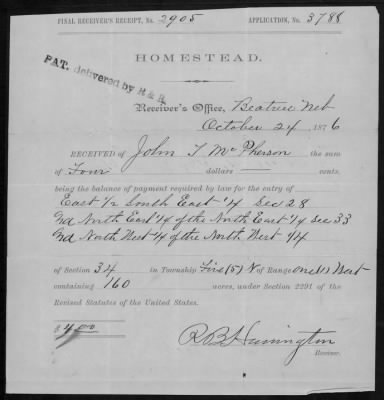 FINAL RECEIVER'S RECEIPT, No. 2905 APPLICATION, No. 3788
HOMESTEAD.
PAT. delivered by R & R.
Receiver's Office, Beatrice Neb
October 24, 1876
RECEIVED of John T McPherson the sum
of Four dollars — cents,
being the balance of payment required by law for the entry of
East 1/2 South East 1/4 Sec 28
And North East 1/4 of the North East 1/4 Sec 33
And North West 1/4 of the North West 1/4
of Section 34 in Township Five (5) N of Range One (1) West
containing 160 acres, under Section 2291 of the
Revised Statutes of the United States.
$ 4.00
R B Harrington
Receiver.